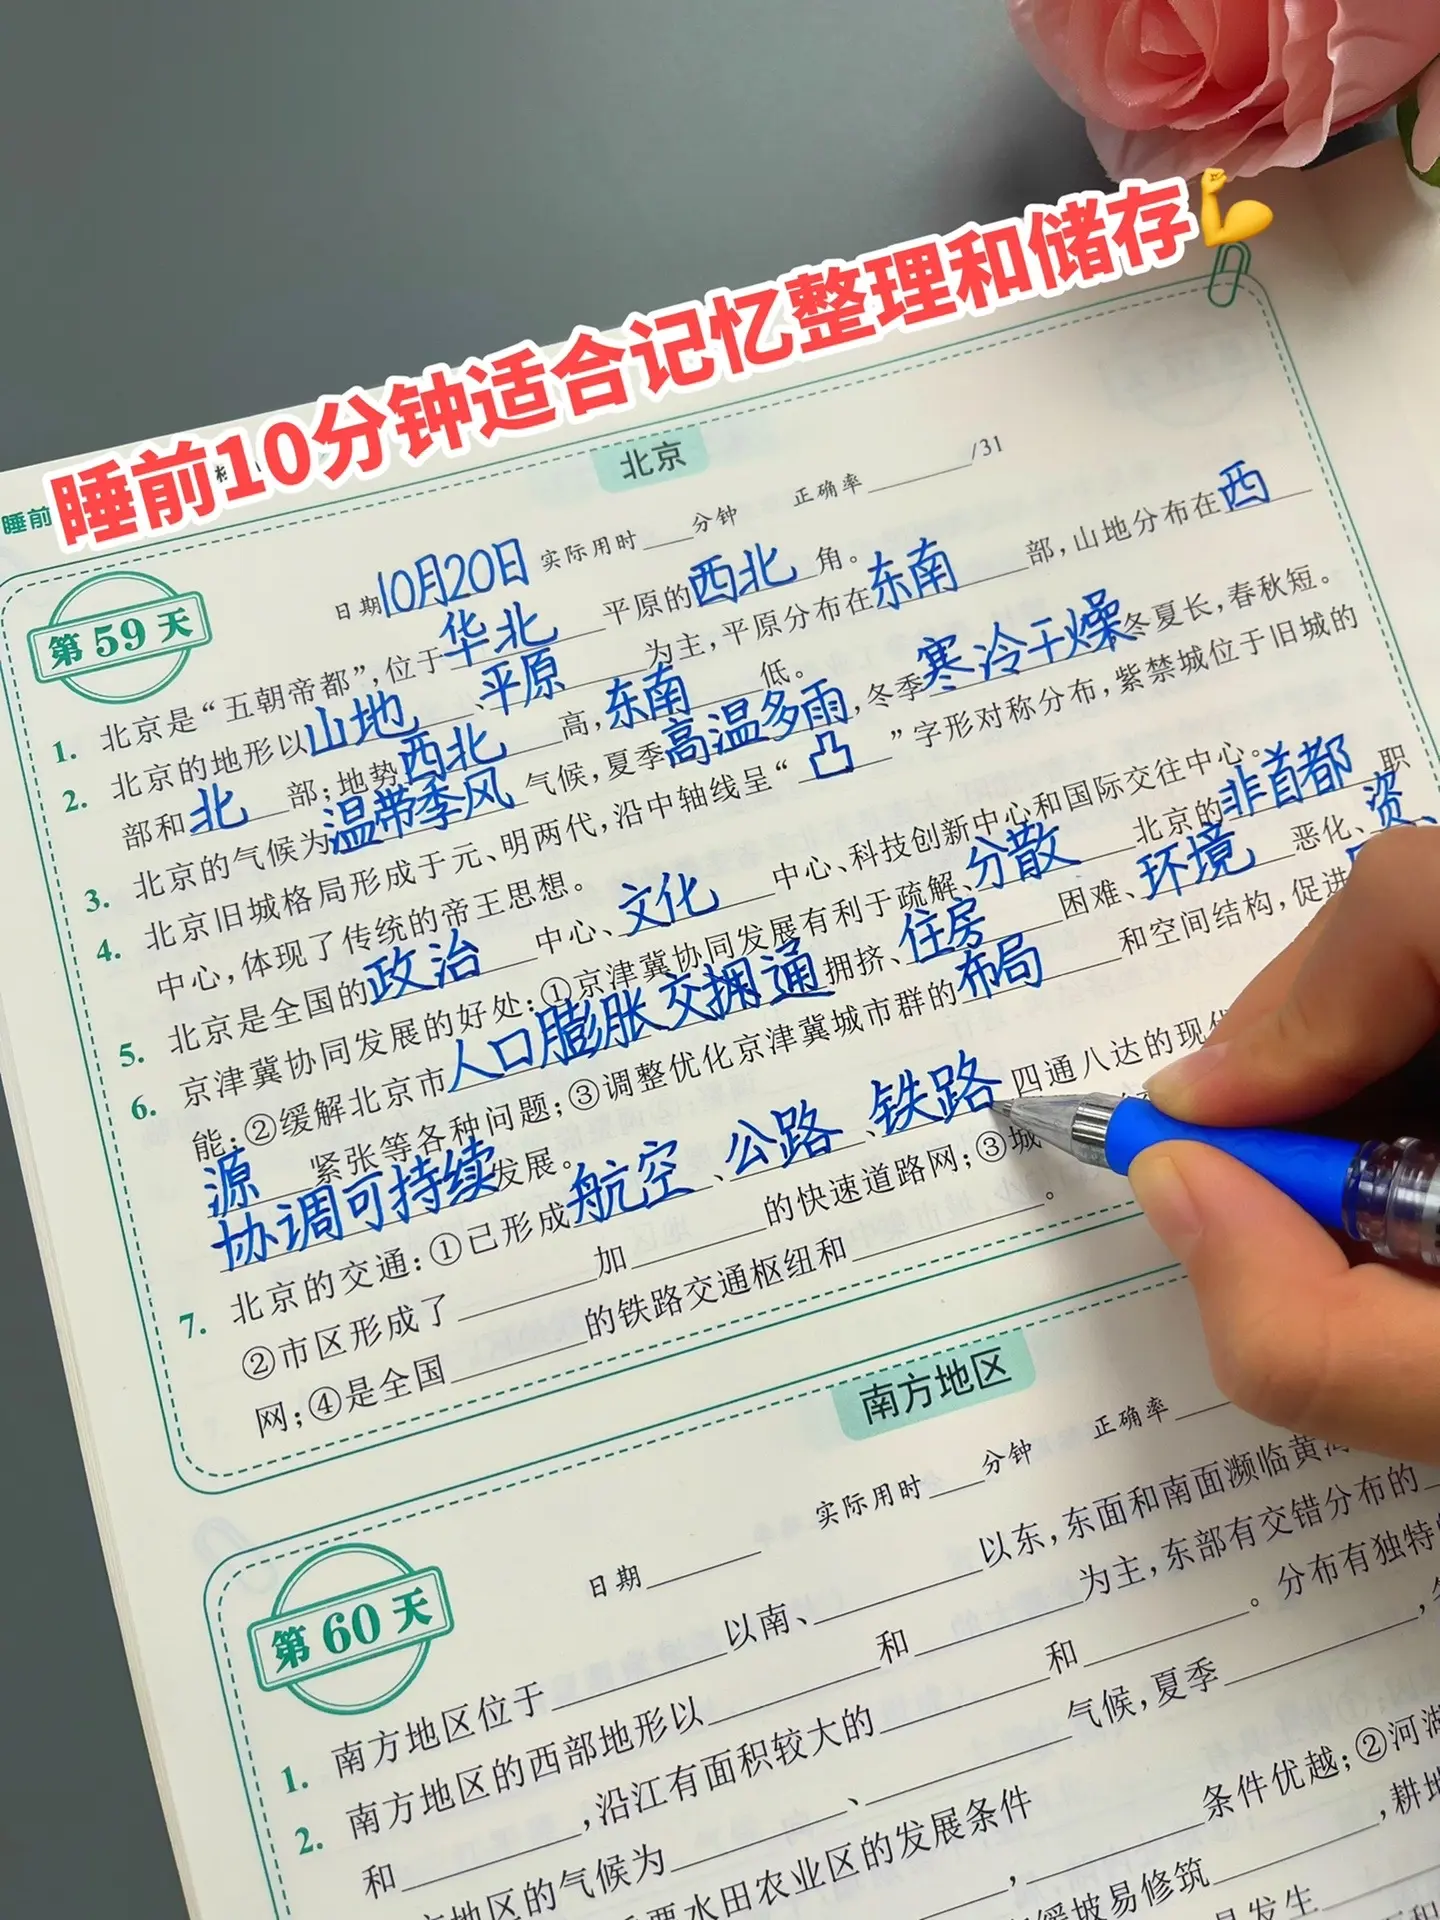 睡前10分钟适合记忆整理和储存💪
睡前
北京
日期10月20日 实际用时____分钟 正确率______/31
第59天
1. 北京是“五朝帝都”,位于华北平原的西北角。
2. 北京的地形以山地、平原为主,平原分布在东南部,山地分布在西
部和北部;地势西北高,东南低。
3. 北京的气候为温带季风气候,夏季高温多雨,冬季寒冷干燥冬夏长,春秋短。
4. 北京旧城格局形成于元、明两代,沿中轴线呈“凸”字形对称分布,紫禁城位于旧城的
中心,体现了传统的帝王思想。
5. 北京是全国的政治中心、文化中心、科技创新中心和国际交往中心。
6. 京津冀协同发展的好处:①京津冀协同发展有利于疏解、分散北京的非首都职
能;②缓解北京市人口膨胀交拥通拥挤、住房困难、环境恶化、资
源紧张等各种问题;③调整优化京津冀城市群的布局和空间结构,促进
协调可持续发展。
7. 北京的交通:①已形成航空、公路、铁路四通八达的现代
②市区形成了______加______的快速道路网;③城
网;④是全国______的铁路交通枢纽和______。
南方地区
日期______ 实际用时____分钟 正确率____
第60天
1. 南方地区位于______以南、______以东,东面和南面濒临黄海
2. 南方地区的西部地形以______和______为主,东部有交错分布的
和______,沿江有面积较大的______和______。分布有独特的
地区的气候为______、______气候,夏季______,
要水田农业区的发展条件
______,______条件优越;②河湖
缓坡易修筑______,耕地
易发生